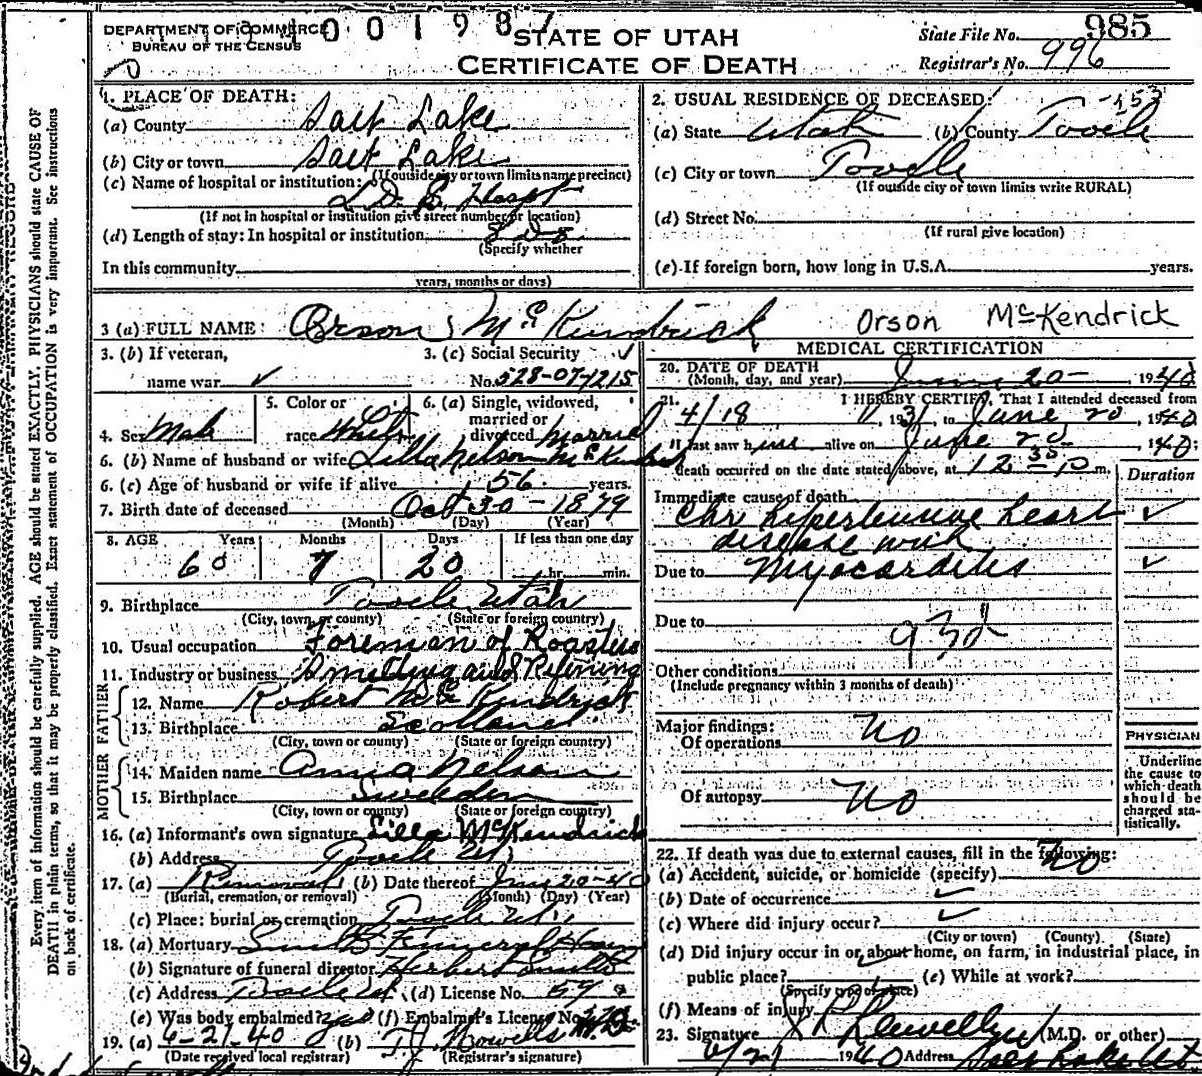 DEPARTMENT OF COMMERCE
BUREAU OF THE CENSUS
STATE OF UTAH
CERTIFICATE OF DEATH
State File No. 985
Registrar's No. 996
1. PLACE OF DEATH:
(a) County Salt Lake
(b) City or town Salt Lake
(If outside city or town limits name precinct)
(c) Name of hospital or institution:
L.D.S. Hospt
(If not in hospital or institution give street number or location)
(d) Length of stay: In hospital or institution
(Specify whether
In this community
years, months or days)
2. USUAL RESIDENCE OF DECEASED:
(a) State Utah (b) County Tooele
(c) City or town Tooele
(If outside city or town limits write RURAL)
(d) Street No.
(If rural give location)
(e) If foreign born, how long in U.S.A. years.
3 (a) FULL NAME: Orson McKendrick Orson McKendrick
3. (b) If veteran,
name war
3. (c) Social Security
No. 528-07-1215
4. Sex Male
5. Color or
race White
6. (a) Single, widowed,
married or
divorced Married
6. (b) Name of husband or wife Lilla Nelson McKendrick
6. (c) Age of husband or wife if alive 56 years.
7. Birth date of deceased Oct 30 - 1879
(Month) (Day) (Year)
8. AGE Years Months Days If less than one day
60 7 20 hr. min.
9. Birthplace Tooele, Utah
(City, town, or county) (State or foreign country)
10. Usual occupation Foreman of Roasters
11. Industry or business Smelting and Refining
FATHER
12. Name Robert McKendrick
13. Birthplace Scotland
(City, town or county) (State or foreign country)
MOTHER
14. Maiden name Anna Nelson
15. Birthplace Sweeden
(City, town or county) (State or foreign country)
16. (a) Informant's own signature Lilla McKendrick
(b) Address Tooele Ut.
17. (a) Removal (b) Date thereof June 20-40
(Burial, cremation, or removal) (Month) (Day) (Year)
(c) Place: burial or cremation Tooele Ut.
18. (a) Mortuary Funeral Home
(b) Signature of funeral director Herbert
(c) Address Tooele Ut (d) License No.
(e) Was body embalmed? yes (f) Embalmer's License No.
19. (a) 6-21-40 (b) T.J. Howells
(Date received local registrar) (Registrar's signature)
MEDICAL CERTIFICATION
20. DATE OF DEATH
(Month, day, and year) June 20 - , 1940
21. I HEREBY CERTIFY, That I attended deceased from
4/18 , 193 , to June 20 , 1940
I last saw him alive on June 20 1940
death occurred on the date stated above, at 12 35 p m.
Duration
Immediate cause of death
Chr hypertensive heart
disease with
Due to Myocarditis
Due to
93d
Other conditions
(Include pregnancy within 3 months of death)
Major findings:
Of operations No
Of autopsy No
PHYSICIAN
Underline
the cause to
which death
should be
charged sta-
tistically.
22. If death was due to external causes, fill in the following:
(a) Accident, suicide, or homicide (specify) No
(b) Date of occurrence
(c) Where did injury occur?
(City or town) (County) (State)
(d) Did injury occur in or about home, on farm, in industrial place, in
public place? (e) While at work?
(Specify type of place)
(f) Means of injury
23. Signature Llewellyn (M.D. or other)
6/21 1940 Address Salt Lake Ut
Every item of information should be carefully supplied. AGE should be stated EXACTLY. PHYSICIANS should state CAUSE OF
DEATH in plain terms, so that it may be properly classified. Exact statement of OCCUPATION is very important. See instructions
on back of certificate.